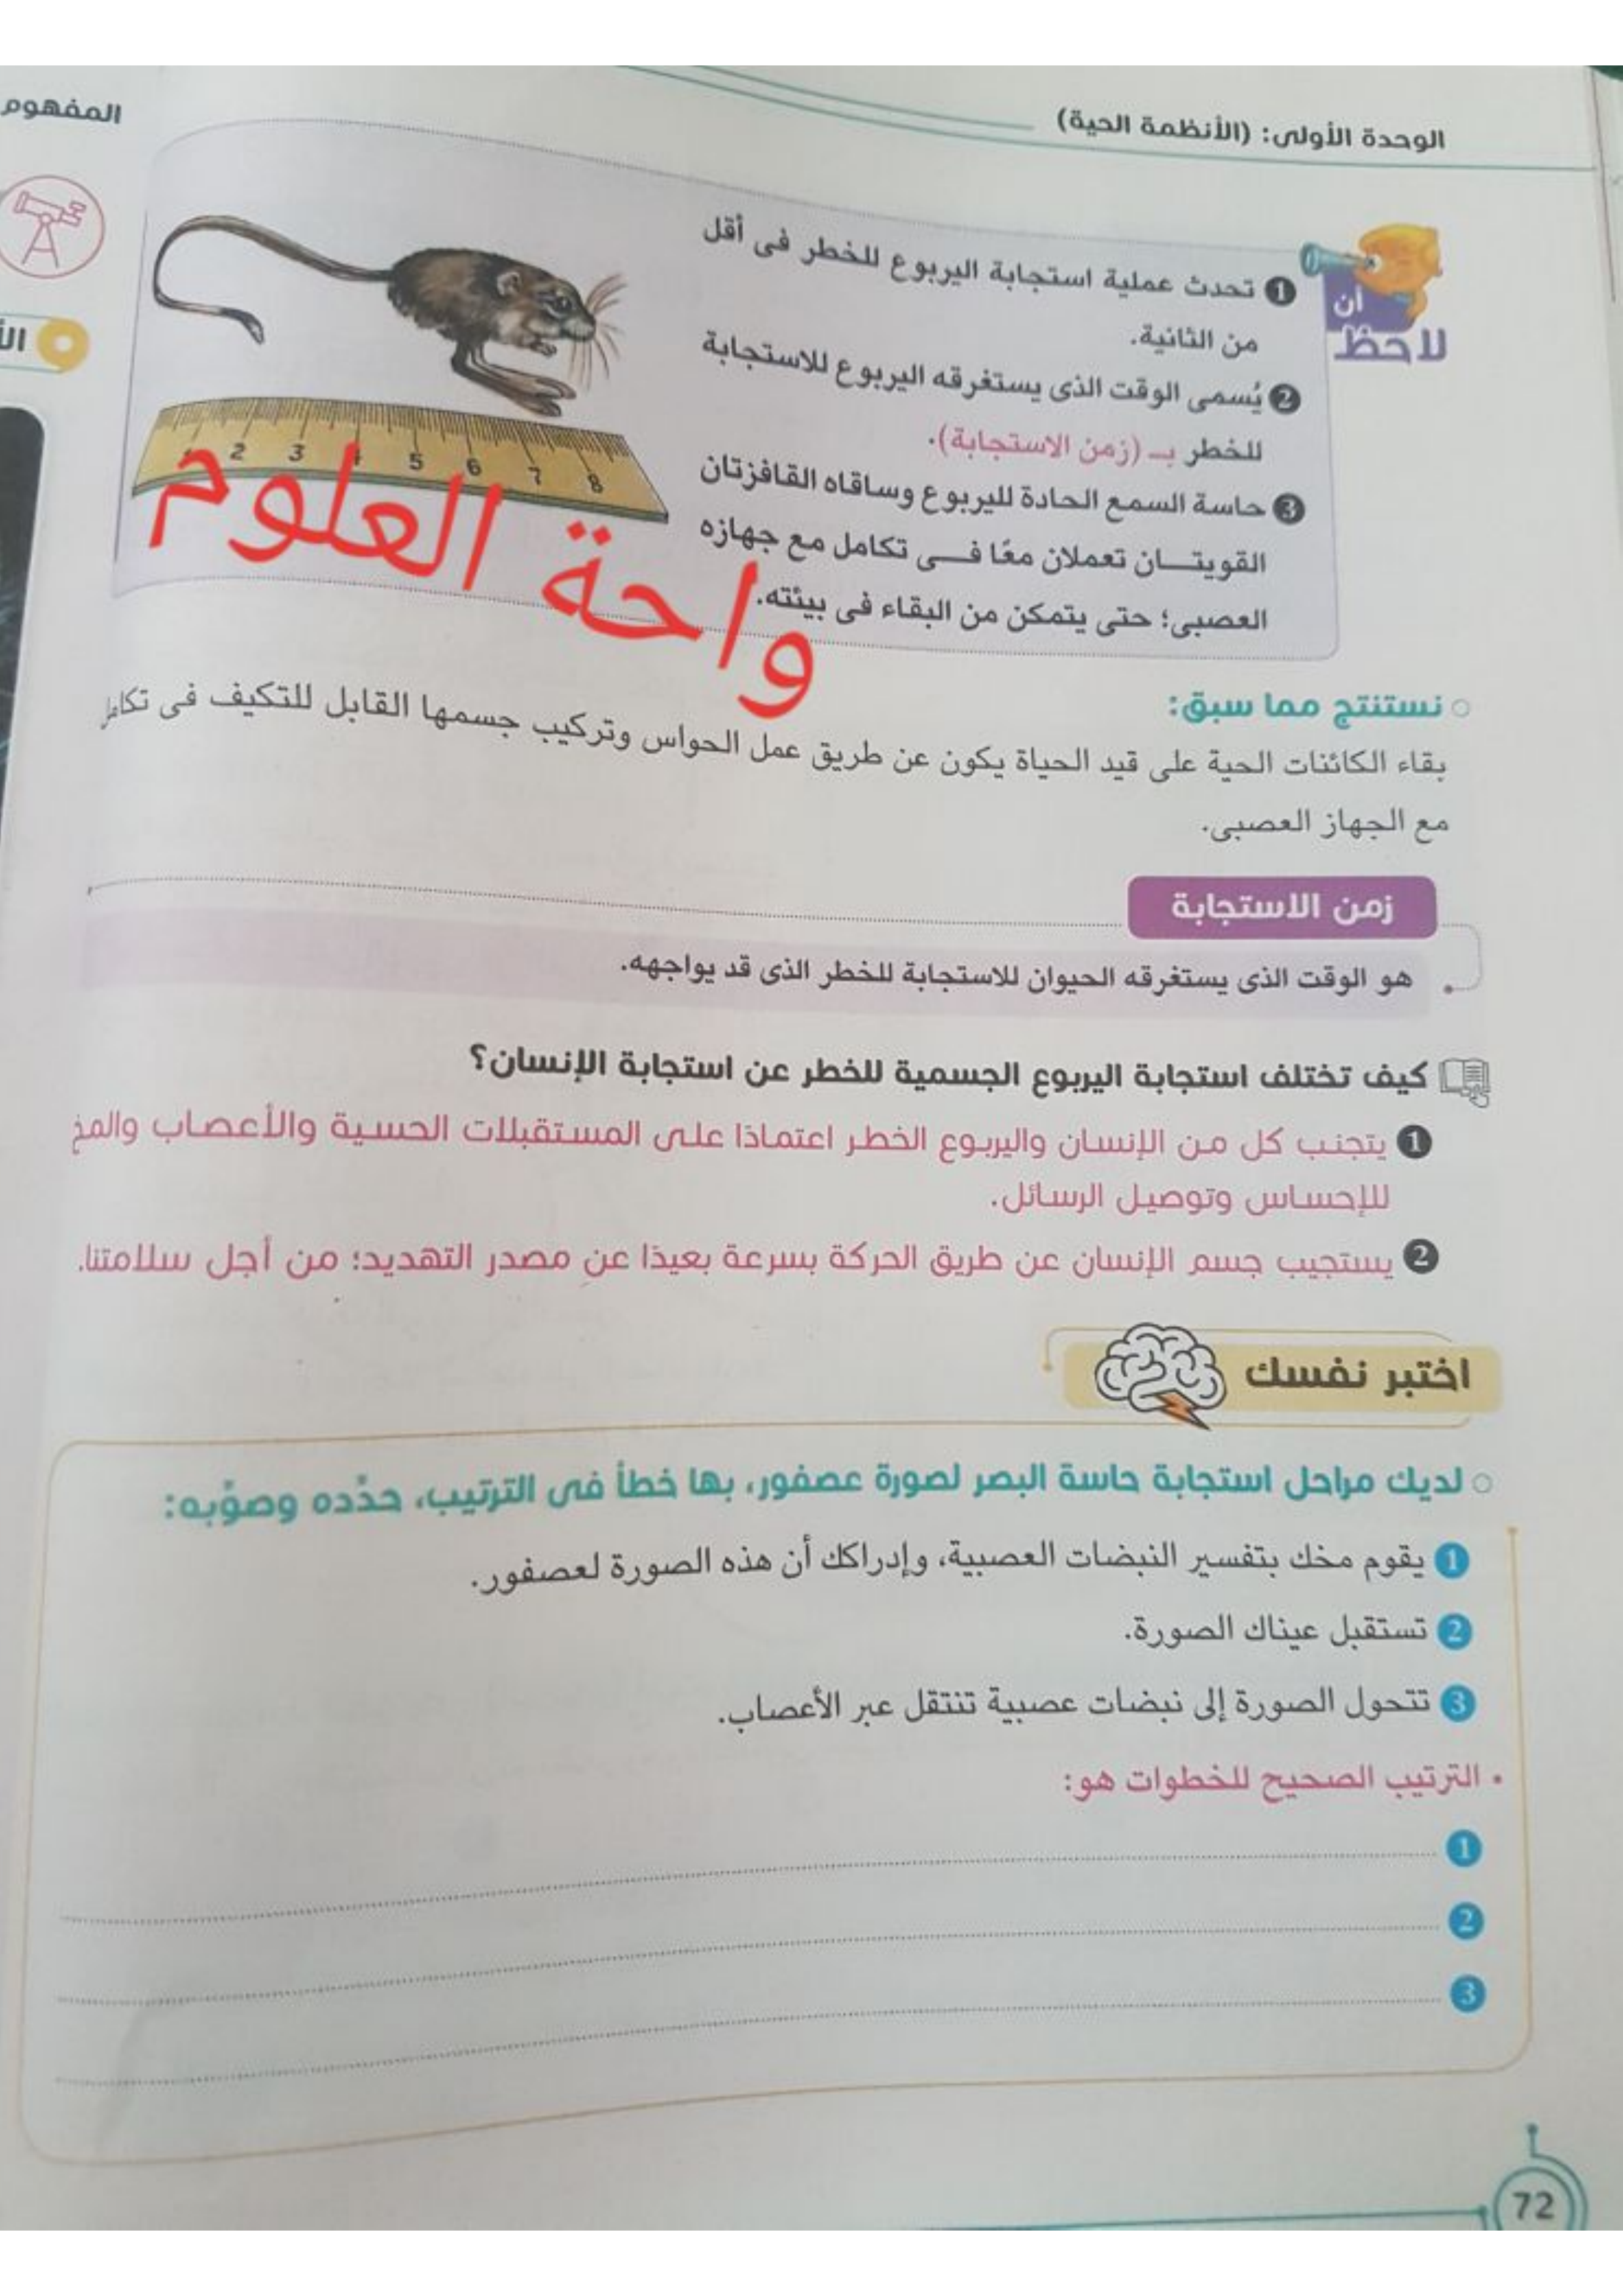 الوحدة الأولى: (الأنظمة الحية)
المفهوم
لاحظ أن
❶ تحدث عملية استجابة اليربوع للخطر فى أقل
من الثانية.
❷ يُسمى الوقت الذى يستغرقه اليربوع للاستجابة
للخطر بـ (زمن الاستجابة).
❸ حاسة السمع الحادة لليربوع وساقاه القافزتان
القويتـان تعملان معًا فـى تكامل مع جهازه
العصبى؛ حتى يتمكن من البقاء فى بيئته.
2 3 4 5 6 7 8
واحة العلوم
نستنتج مما سبق:
بقاء الكائنات الحية على قيد الحياة يكون عن طريق عمل الحواس وتركيب جسمها القابل للتكيف فى تكامل
مع الجهاز العصبى.
زمن الاستجابة
هو الوقت الذى يستغرقه الحيوان للاستجابة للخطر الذى قد يواجهه.
كيف تختلف استجابة اليربوع الجسمية للخطر عن استجابة الإنسان؟
❶ يتجنب كل من الإنسان واليربوع الخطر اعتمادًا على المستقبلات الحسية والأعصاب والمخ
للإحساس وتوصيل الرسائل.
❷ يستجيب جسم الإنسان عن طريق الحركة بسرعة بعيدًا عن مصدر التهديد؛ من أجل سلامتنا.
اختبر نفسك
لديك مراحل استجابة حاسة البصر لصورة عصفور، بها خطأ فى الترتيب، حدِّده وصوِّبه:
1 يقوم مخك بتفسير النبضات العصبية، وإدراكك أن هذه الصورة لعصفور.
2 تستقبل عيناك الصورة.
3 تتحول الصورة إلى نبضات عصبية تنتقل عبر الأعصاب.
• الترتيب الصحيح للخطوات هو:
1
2
3
72